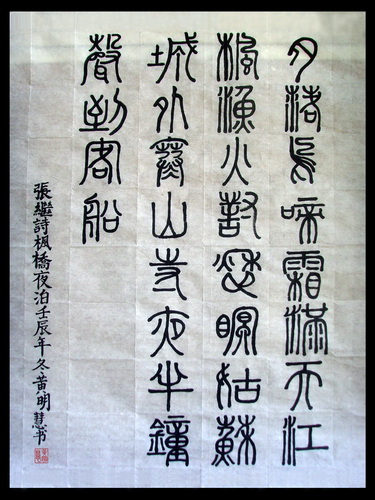 月落烏啼霜滿天江
楓漁火對愁眠姑蘇
城外寒山寺夜半鐘
聲到客船
張繼詩楓橋夜泊壬辰年冬黃明慧书